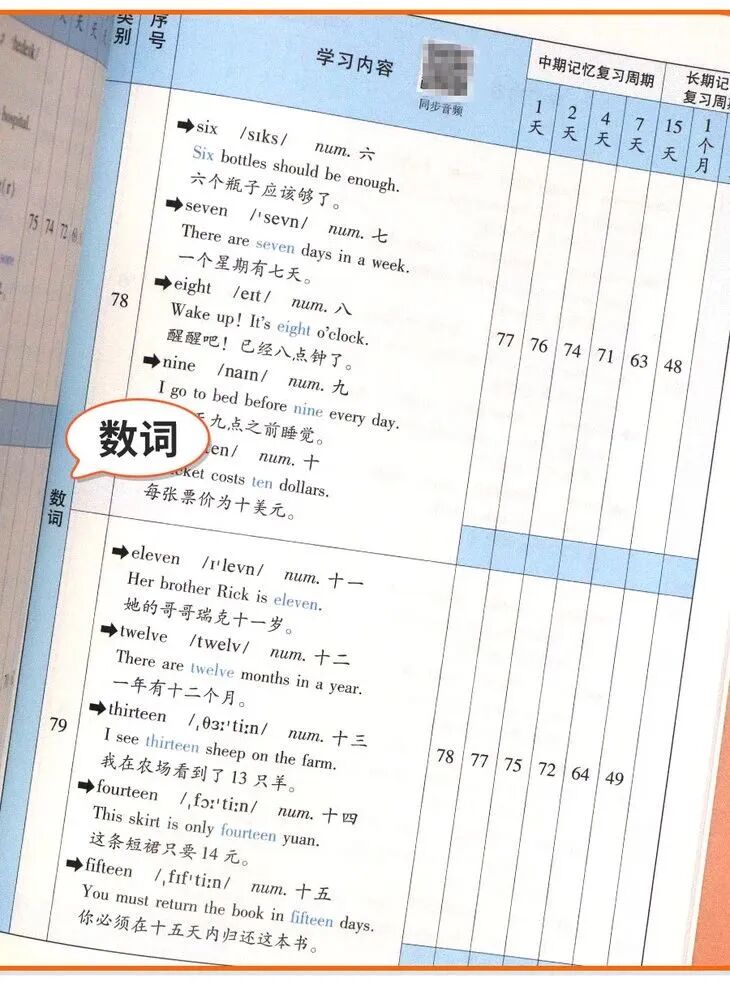 类别
序号
学习内容
同步音频
中期记忆复习周期
1天
2天
4天
7天
15天
1个月
78
six /sɪks/ num. 六
Six bottles should be enough.
六个瓶子应该够了。
seven /ˈsevn/ num. 七
There are seven days in a week.
一个星期有七天。
eight /eɪt/ num. 八
Wake up! It's eight o'clock.
醒醒吧！已经八点钟了。
nine /naɪn/ num. 九
I go to bed before nine every day.
九点之前睡觉。
num. 十
costs ten dollars.
每张票价为十美元。
77 76 74 71 63 48
数词
数词
79
eleven /ɪˈlevn/ num. 十一
Her brother Rick is eleven.
她的哥哥瑞克十一岁。
twelve /twelv/ num. 十二
There are twelve months in a year.
一年有十二个月。
thirteen /ˌθɜːˈtiːn/ num. 十三
I see thirteen sheep on the farm.
我在农场看到了 13 只羊。
fourteen /ˌfɔːˈtiːn/ num. 十四
This skirt is only fourteen yuan.
这条短裙只要 14 元。
fifteen /ˌfɪfˈtiːn/ num. 十五
You must return the book in fifteen days.
你必须在十五天内归还这本书。
78 77 75 72 64 49
hospital.
75 74 72